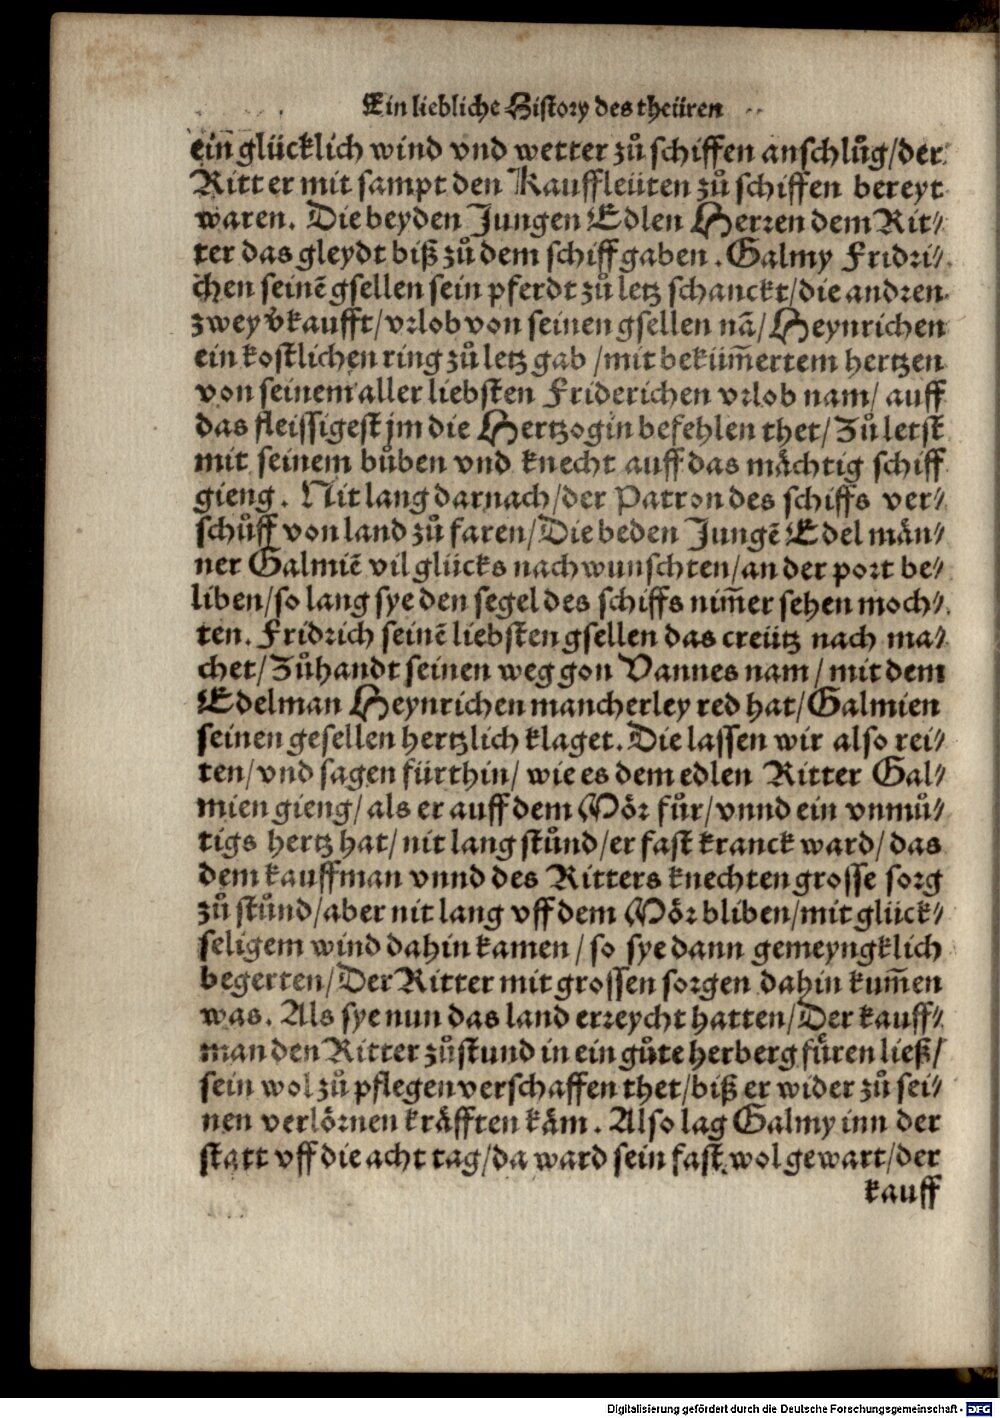 Ein liebliche History des theüren
ein glücklich wind vnd wetter zů schiffen anschlůg/der
Ritter mit sampt den Kauffleüten zů schiffen bereyt
waren. Die beyden Jungen Edlen Herren dem Rit⸗
ter das gleydt biß zů dem schiff gaben. Galmy Fridri⸗
chen seinē gsellen sein pferdt zů letz schanckt/die andren
zwey v̄kaufft/vrlob von seinen gsellen nā/Heynrichen
ein kostlichen ring zů letz gab/mit beküm̄ertem hertzen
von seinem aller liebsten Friderichen vrlob nam/auff
das fleissigest jm die Hertzogin befehlen thet/Zů letst
mit seinem bůben vnd knecht auff das mächtig schiff
gieng. Nit lang darnach/der Patron des schiffs ver⸗
schůff von land zů faren/Die beden Jungē Edel män⸗
ner Galmiē vil glücks nach wunschten/an der port be⸗
liben/so lang sye den segel des schiffs nim̄er sehen moch⸗
ten. Fridrich seinē liebsten gsellen das creütz nach ma⸗
chet/Zůhandt seinen weg gon Vannes nam/mit dem
Edelman Heynrichen mancherley red hat/Galmien
seinen gesellen hertzlich klaget. Die lassen wir also rei⸗
ten/vnd sagen fürthin/wie es dem edlen Ritter Gal⸗
mien gieng/als er auff dem Mör fůr/vnnd ein vnmů⸗
tigs hertz hat/nit lang stůnd/er fast kranck ward/das
dem kauffman vnnd des Ritters knechten grosse sorg
zů stůnd/aber nit lang vff dem Mör bliben/mit glück⸗
seligem wind dahin kamen/so sye dann gemeyngklich
begerten/Der Ritter mit grossen sorgen dahin kum̄en
was. Als sye nun das land erreycht hatten/Der kauff⸗
man den Ritter zůstund in ein gůte herberg fůren ließ/
sein wol zů pflegen verschaffen thet/biß er wider zů sei⸗
nen verlörnen kräfften käm. Also lag Galmy inn der
statt vff die acht tag/da ward sein fast wol gewart/der
kauff
Digitalisierung gefördert durch die Deutsche Forschungsgemeinschaft - DFG